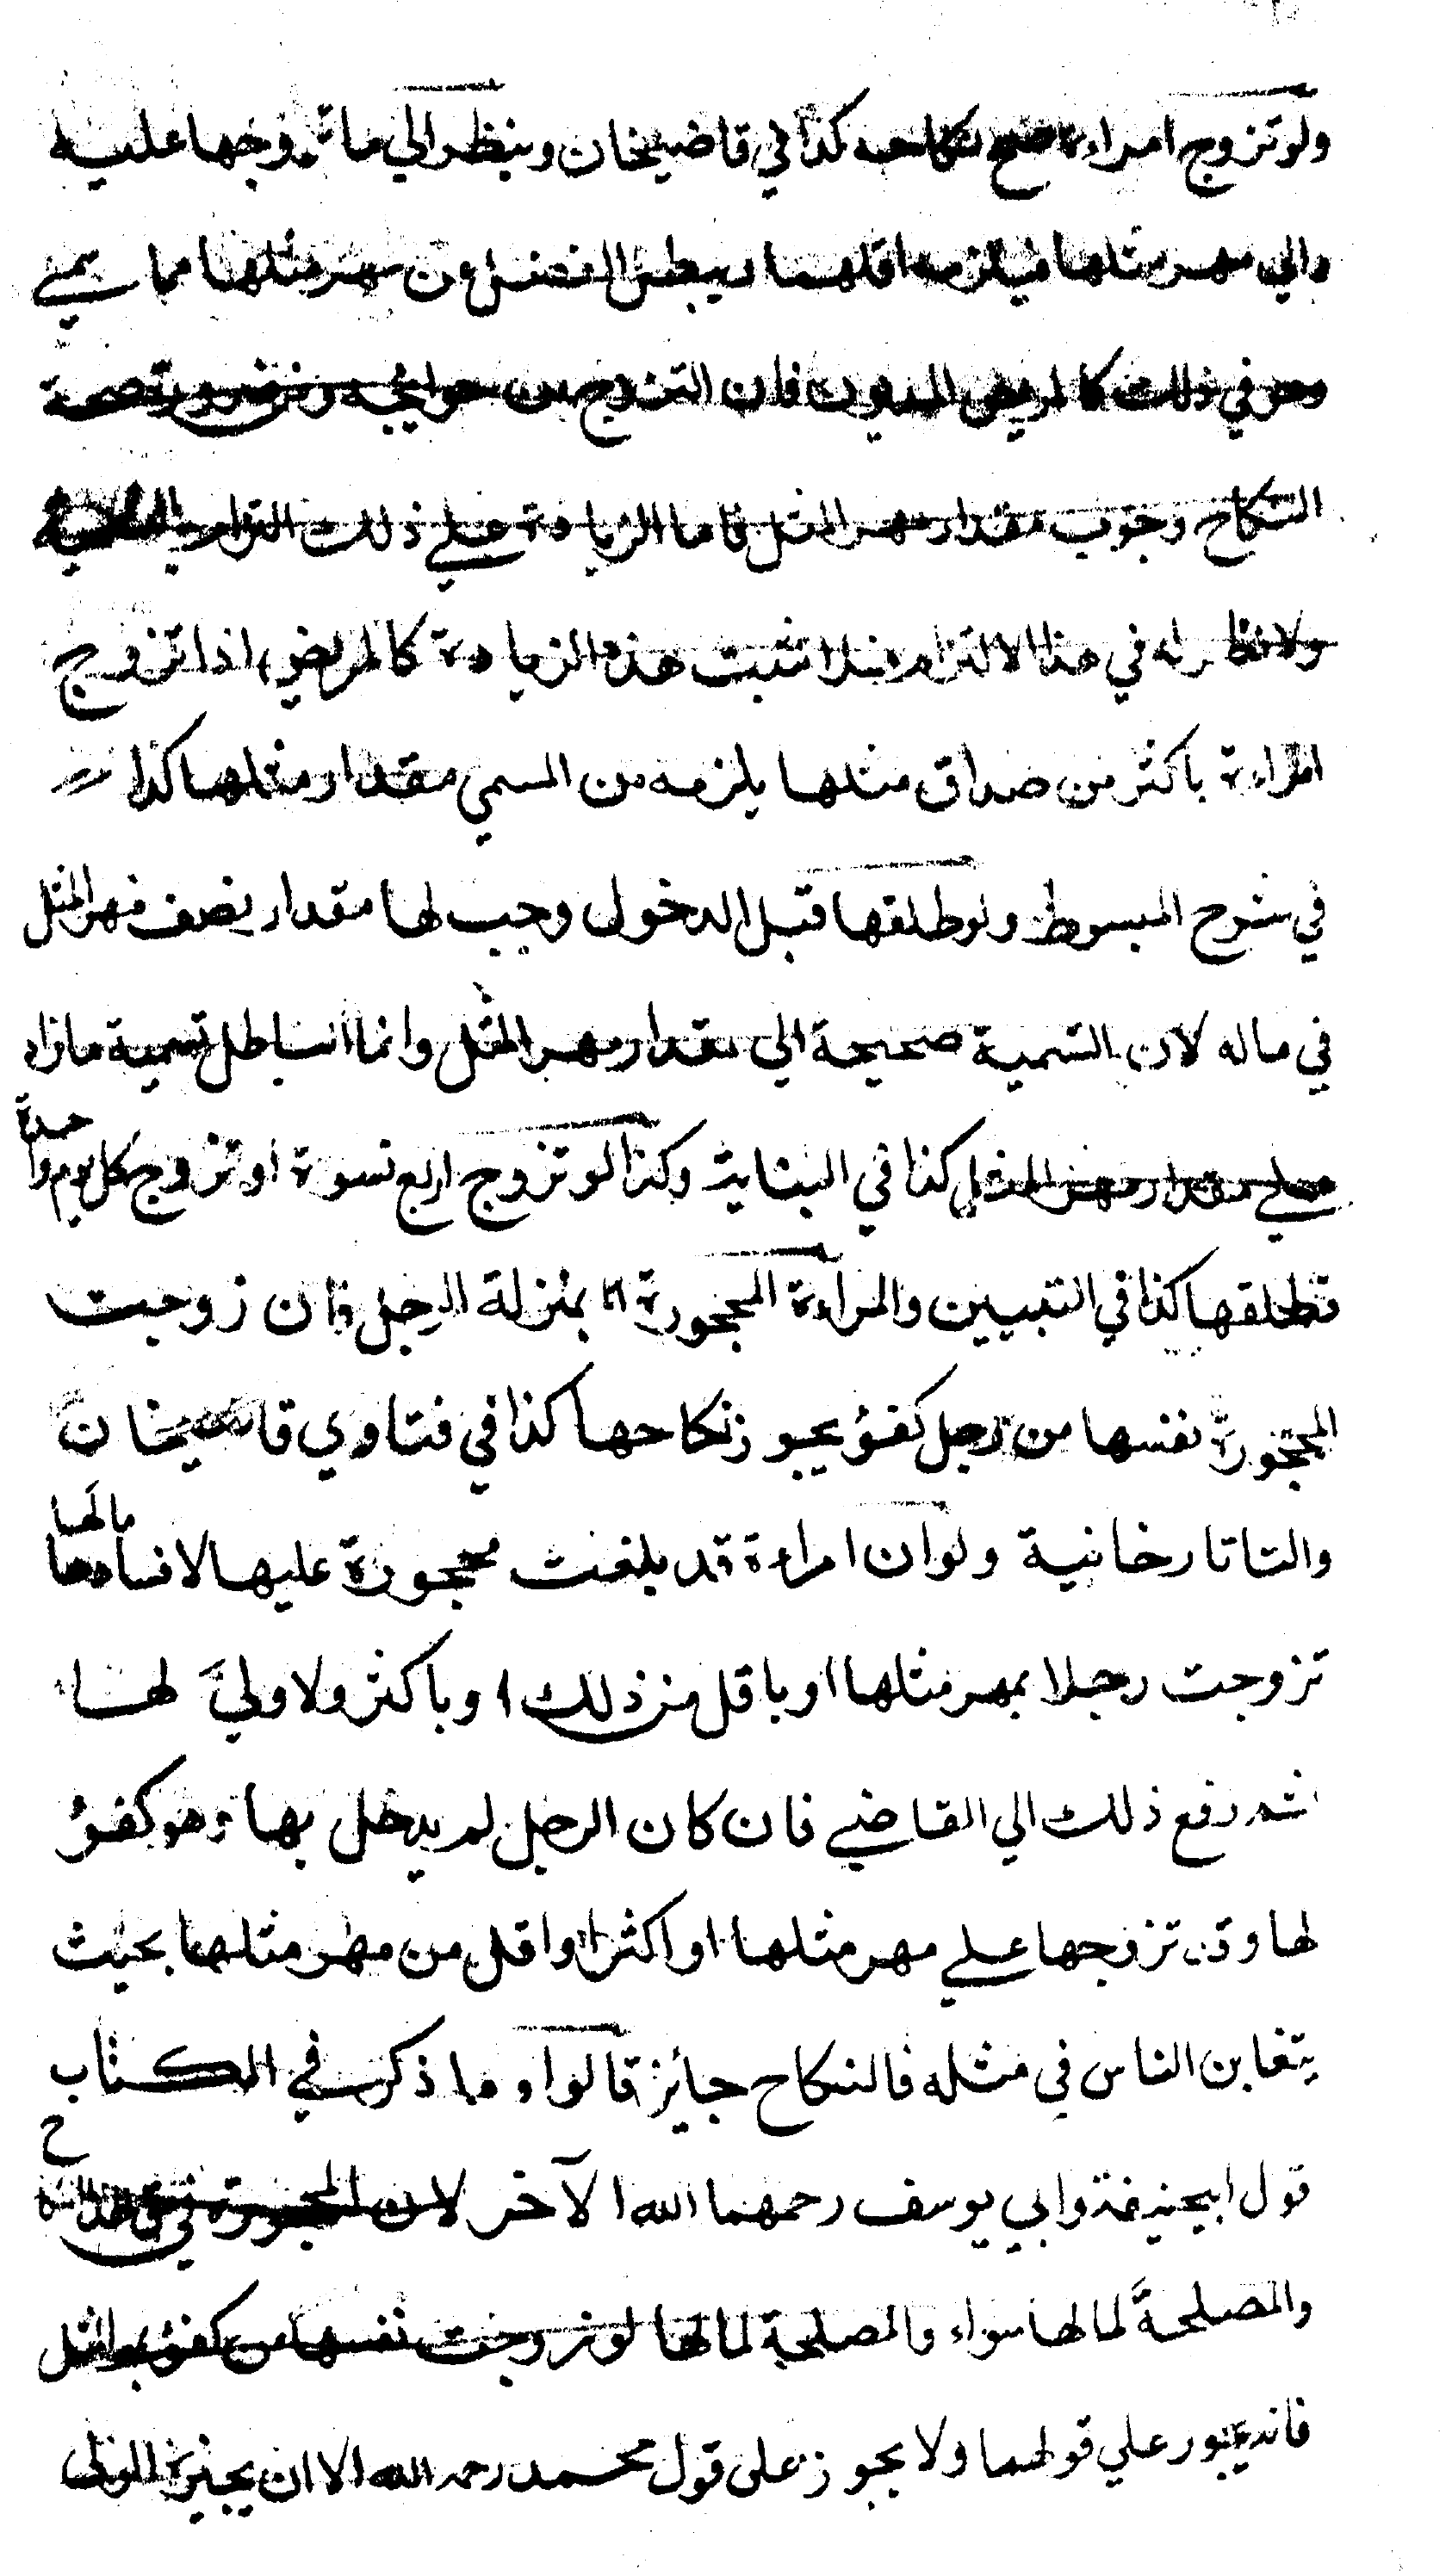 ولو تزوج امراءة صح نكاحه كذا في قاضيخان وينظر الي ما تزوجها عليه
والي مهر مثلها فيلزمه اقلهما ويبطل الفضل عن مهر مثلها مما سمي
وهو في ذلك كالمريض المديون فان التزوج من حوائجه ومن ضرورة صحة
النكاح وجوب مقدار مهر المثل فاما الزيادة علي ذلك التزام بالتسمية
ولا نظر له في هذا الالتزام فلا تثبت هذه الزيادة كالمريض اذا تزوج
امراءة باكثر من صداق مثلها يلزمه من المسمي مقدار مثلها كذا
في شرح المبسوط ولو طلقها قبل الدخول وجب لها مقدار نصف مهر المثل
في ماله لان التسمية صحيحة الي مقدار مهر المثل وانما الباطل تسمية ما زاد
علي مقدار مهر المثل كذا في البناية وكذا لو تزوج اربع نسوة او تزوج كل يوم واحدة
فطلقها كذا في التبيين والمراءة المحجورة بمنزلة الرجل فان زوجت
المحجورة نفسها من رجل كفؤ يجوز نكاحها كذا في فتاوي قاضيخان
والتاتارخانية ولو ان امراءة قد بلغت محجورة عليها لافسادها مالها
تزوجت رجلا بمهر مثلها او باقل من ذلك او باكثر ولا ولي لها
ثم رفع ذلك الي القاضي فان كان الرجل لم يدخل بها وهو كفؤ
لها وقد تزوجها علي مهر مثلها او اكثر او اقل من مهر مثلها بحيث
يتغابن الناس في مثله فالنكاح جائز قالوا وما ذكر في الكتاب
قول ابيحنيفة وابي يوسف رحمهما الله الآخر لان المحجورة في حق هذا النكاح
والمصلحة لمالها سواء والمصلحة لمالها لو زوجت نفسها من كفؤ بمهر المثل
فانه يجوز علي قولهما ولا يجوز علي قول محمد رحمه الله الا ان يجيزه الولي